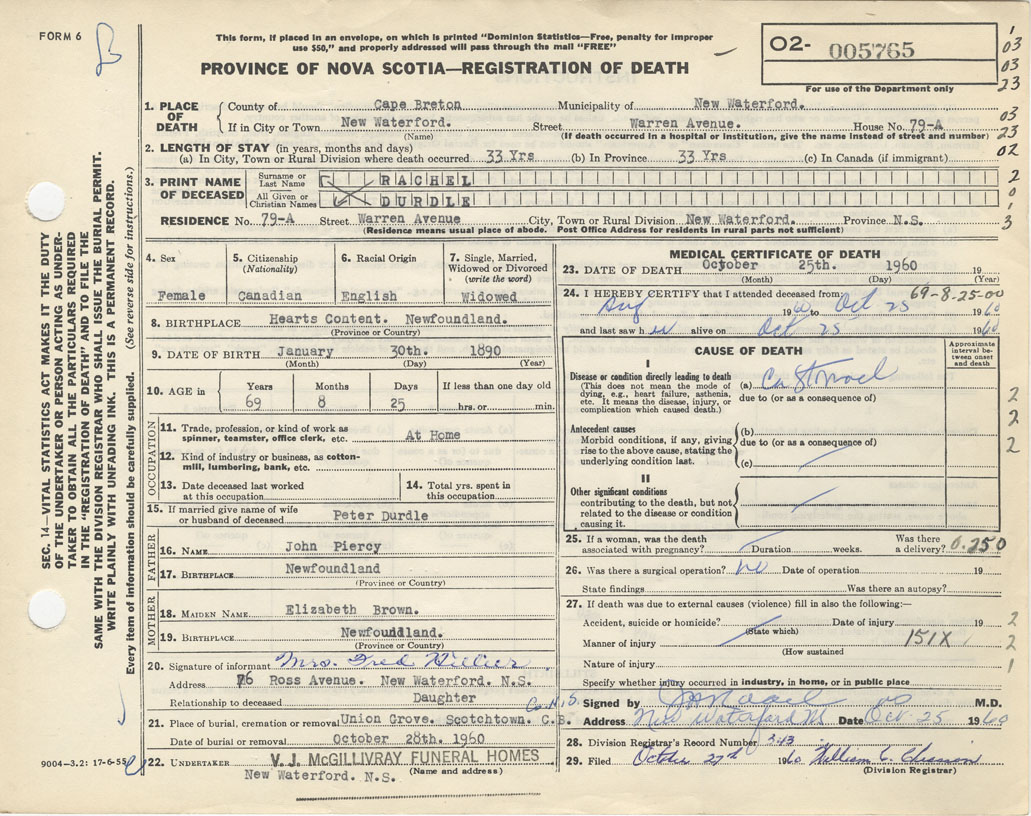 FORM 6
This form, if placed in an envelope, on which is printed "Dominion Statistics—Free, penalty for improper
use $50," and properly addressed will pass through the mail "FREE"
PROVINCE OF NOVA SCOTIA—REGISTRATION OF DEATH
O2- 005765
For use of the Department only
1
03
03
23
03
23
02
2
0
1
3
SEC. 14—VITAL STATISTICS ACT MAKES IT THE DUTY
OF THE UNDERTAKER OR PERSON ACTING AS UNDER-
TAKER TO OBTAIN ALL THE PARTICULARS REQUIRED
IN THE "REGISTRATION OF DEATH" AND TO FILE THE
SAME WITH THE DIVISION REGISTRAR WHO SHALL ISSUE THE BURIAL PERMIT.
WRITE PLAINLY WITH UNFADING INK. THIS IS A PERMANENT RECORD.
Every item of information should be carefully supplied. (See reverse side for instructions.)
1. PLACE OF DEATH
County of Cape Breton Municipality of New Waterford.
If in City or Town New Waterford. Street Warren Avenue. House No. 79-A
(Name) (If death occurred in a hospital or institution, give the name instead of street and number)
2. LENGTH OF STAY (in years, months and days)
(a) In City, Town or Rural Division where death occurred 33 Yrs (b) In Province 33 Yrs (c) In Canada (if immigrant)
3. PRINT NAME OF DECEASED
Surname or Last Name RACHEL
All Given or Christian Names DURDLE
RESIDENCE No. 79-A Street Warren Avenue City, Town or Rural Division New Waterford. Province N.S.
(Residence means usual place of abode. Post Office Address for residents in rural parts not sufficient)
4. Sex
Female
5. Citizenship
(Nationality)
Canadian
6. Racial Origin
English
7. Single, Married,
Widowed or Divorced
(write the word)
Widowed
8. BIRTHPLACE Hearts Content. Newfoundland.
(Province or Country)
9. DATE OF BIRTH January 30th. 1890
(Month) (Day) (Year)
10. AGE in Years Months Days If less than one day old
69 8 25 hrs. or min.
OCCUPATION
11. Trade, profession, or kind of work as
spinner, teamster, office clerk, etc. At Home
12. Kind of industry or business, as cotton-
mill, lumbering, bank, etc.
13. Date deceased last worked
at this occupation
14. Total yrs. spent in
this occupation
15. If married give name of wife
or husband of deceased Peter Durdle
FATHER
16. NAME John Piercy
17. BIRTHPLACE Newfoundland
(Province or Country)
MOTHER
18. MAIDEN NAME Elizabeth Brown.
19. BIRTHPLACE Newfoundland.
(Province or Country)
20. Signature of informant Mrs. Fred Hillier
Address 76 Ross Avenue. New Waterford. N.S.
Relationship to deceased Daughter
21. Place of burial, cremation or removal Union Grove. Scotchtown. C.B.
Date of burial or removal October 28th. 1960
22. UNDERTAKER V. J. McGILLIVRAY FUNERAL HOMES
New Waterford. N.S. (Name and address)
9004-3.2: 17-6-55
MEDICAL CERTIFICATE OF DEATH
23. DATE OF DEATH October 25th. 1960 19
(Month) (Day) (Year)
69-8-25-00
24. I HEREBY CERTIFY that I attended deceased from
Aug 1960 to Oct 25 1960
and last saw her alive on Oct 25 1960
CAUSE OF DEATH
Approximate
interval be-
tween onset
and death
I
Disease or condition directly leading to death
(This does not mean the mode of
dying, e.g., heart failure, asthenia,
etc. It means the disease, injury, or
complication which caused death.)
(a) Ca Stomach
due to (or as a consequence of)
Antecedent causes
Morbid conditions, if any, giving
rise to the above cause, stating the
underlying condition last.
(b)
due to (or as a consequence of)
(c)
2
2
2
II
Other significant conditions
contributing to the death, but not
related to the disease or condition
causing it.
25. If a woman, was the death
associated with pregnancy? Duration weeks. Was there
a delivery? 6.250
26. Was there a surgical operation? no Date of operation 19
State findings Was there an autopsy?
27. If death was due to external causes (violence) fill in also the following:—
Accident, suicide or homicide? Date of injury 19 2
(State which)
Manner of injury 151X 2
(How sustained)
Nature of injury 1
Specify whether injury occurred in industry, in home, or in public place
Signed by M.D.
Address New Waterford NS Date Oct. 25 1960
28. Division Registrar's Record Number 213
29. Filed October 27th 1960 William C.
(Division Registrar)